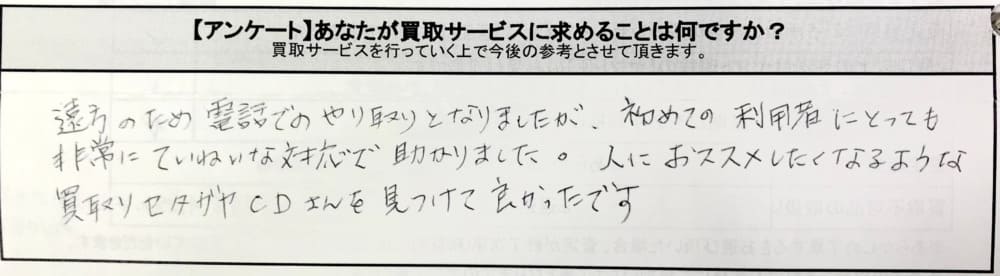 【アンケート】あなたが買取サービスに求めることは何ですか？
買取サービスを行っていく上で今後の参考とさせて頂きます。
遠方のため電話でのやり取りとなりましたが、初めての利用者にとっても
非常にていねいな対応で助かりました。人におススメしたくなるような
買取りセタガヤCDさんを見つけて良かったです